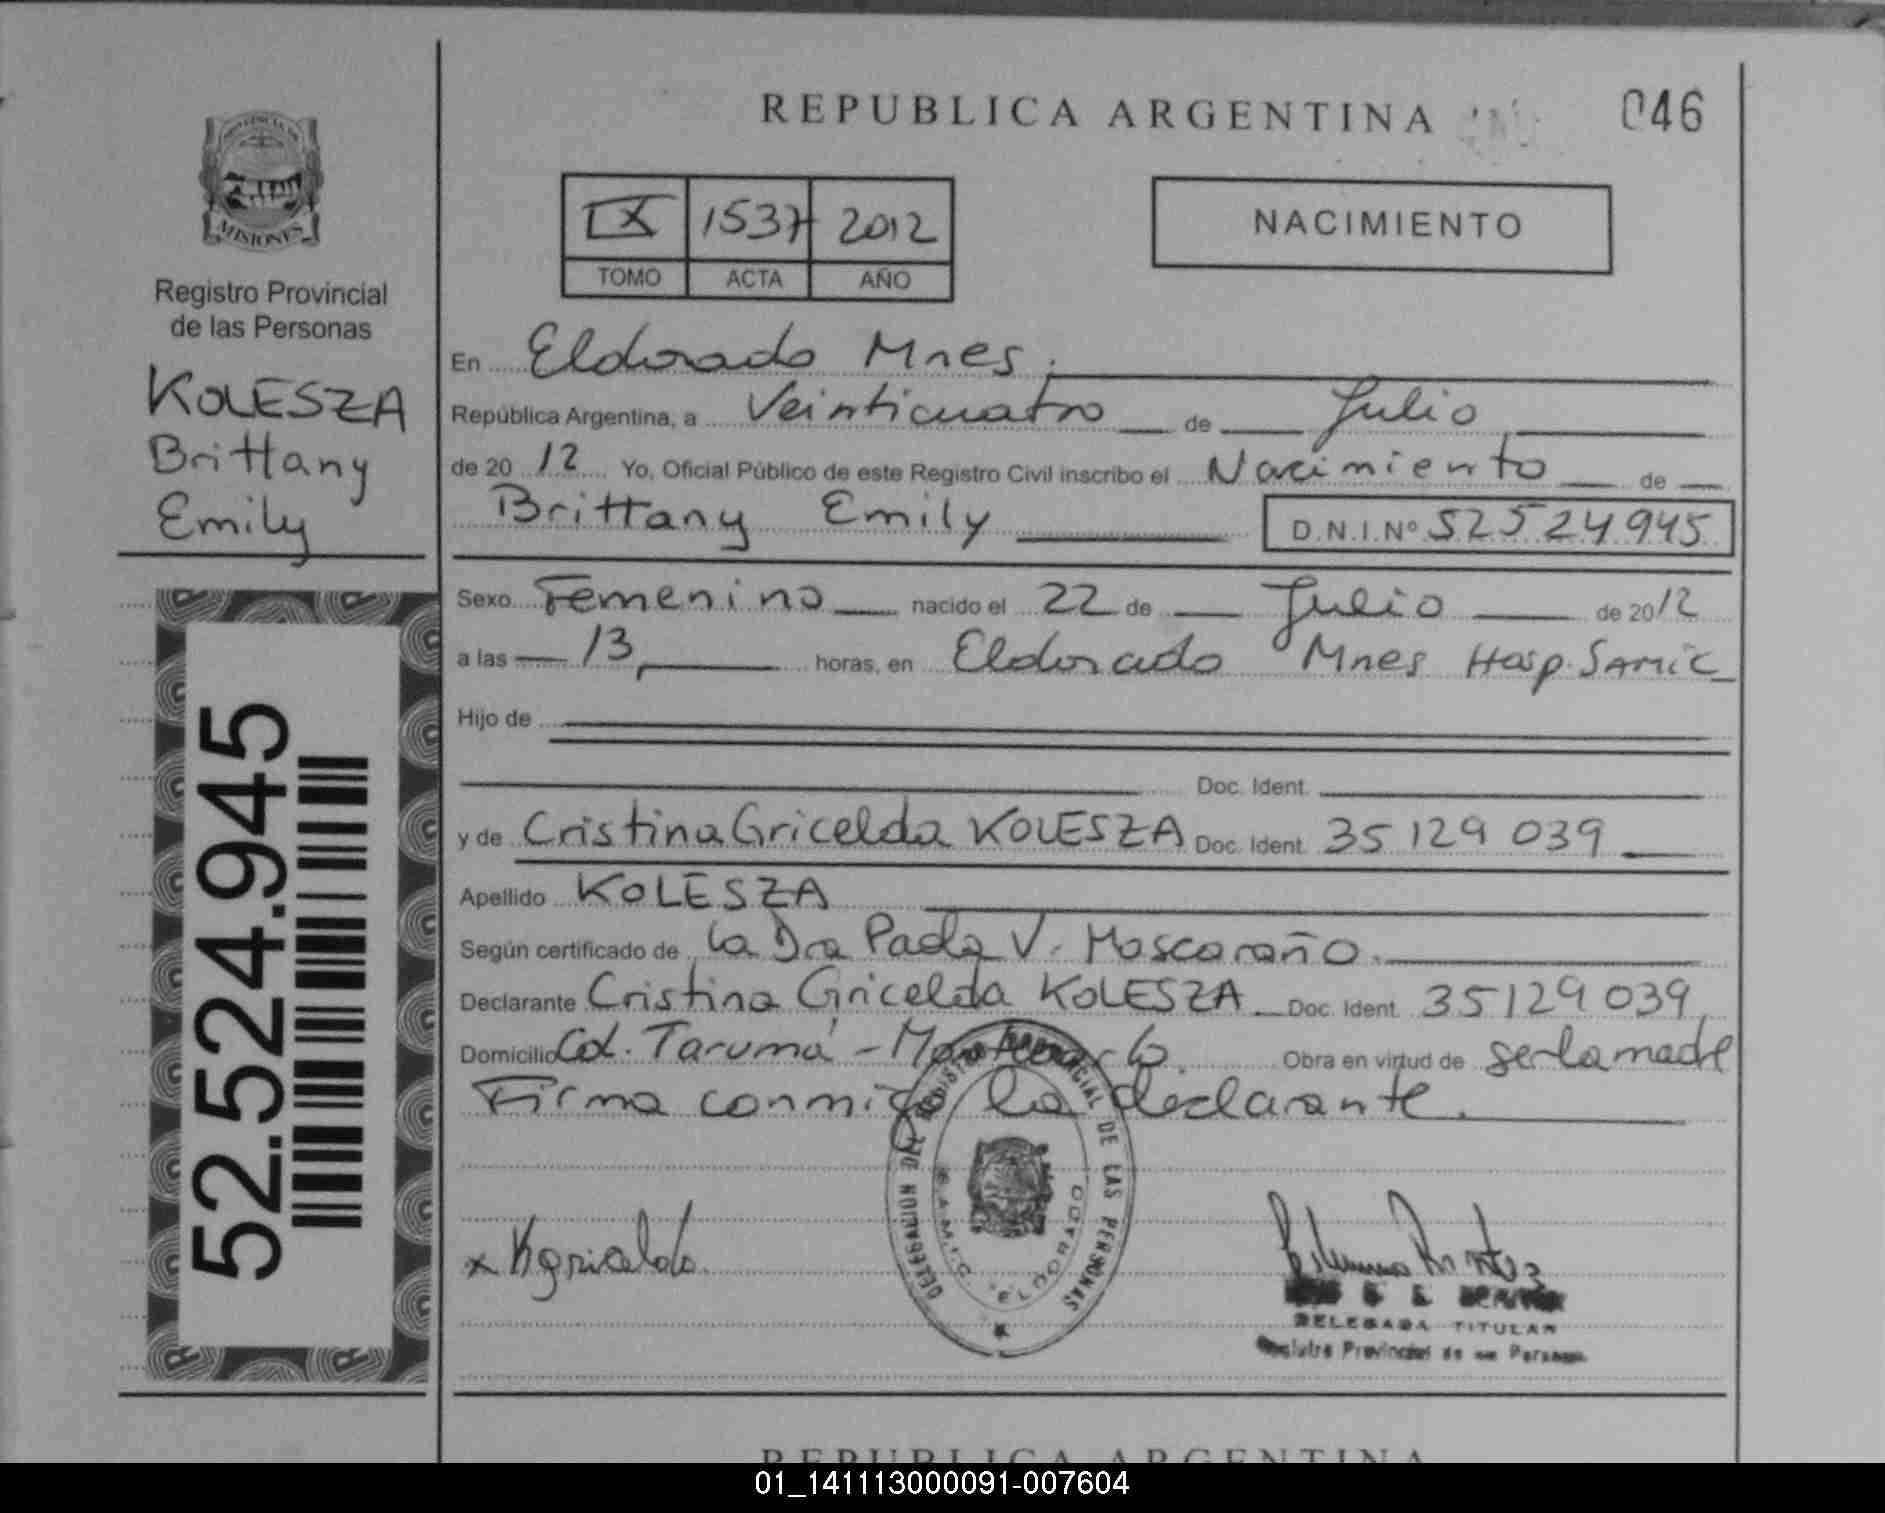 REPUBLICA ARGENTINA
046
PROVINCIA DE
MISIONES
Registro Provincial
de las Personas
KOLESZA
Brittany
Emily
52.524.945
IX 1537 2012
TOMO ACTA AÑO
NACIMIENTO
En Eldorado Mnes.
República Argentina, a Veinticuatro de Julio
de 2012 Yo, Oficial Público de este Registro Civil inscribo el Nacimiento de
Brittany Emily D.N.I.Nº 52524945
Sexo Femenino nacido el 22 de Julio de 2012
a las 13, horas, en Eldorado Mnes Hosp. SAMIC
Hijo de
Doc. Ident.
y de Cristina Gricelda KOLESZA Doc. Ident. 35 129 039
Apellido KOLESZA
Según certificado de la Dra Paola V. Moscoraño.
Declarante Cristina Gricelda KOLESZA Doc. Ident. 35129039,
Domicilio Col. Tarumá - Montecarlo. Obra en virtud de ser la madre
Firma conmigo la declarante.
DELEGACION DEL REGISTRO PROVINCIAL DE LAS PERSONAS
S.A.M.I.C. ELDORADO
x Kgricelda
DELEGADA TITULAR
Registro Provincial de las Personas
REPUBLICA ARGENTINA
01_141113000091-007604